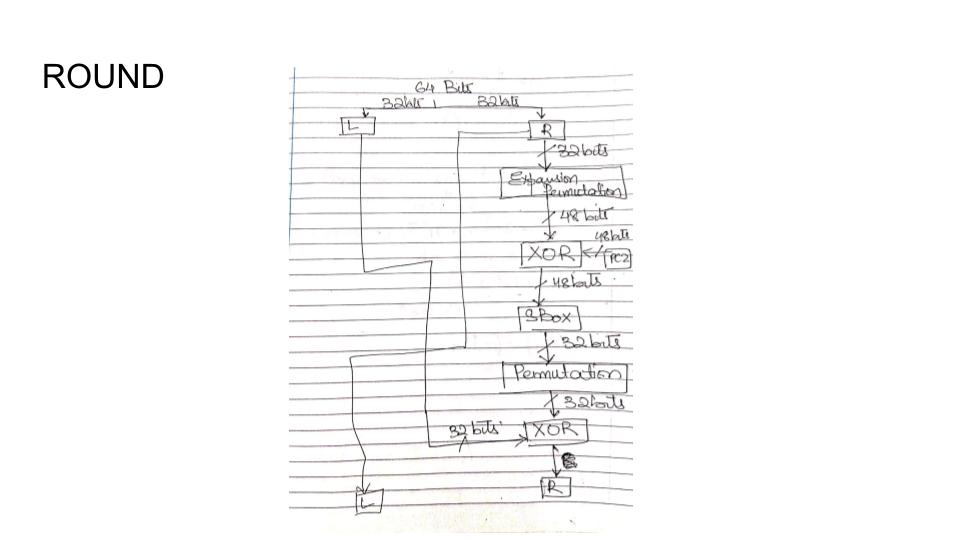 ROUND
64 Bits
32bits 32bits
L
R
32bits
Expansion
Permutation
48 bits
48bits
XOR
PC2
48bits
SBox
32bits
Permutation
32bits
32 bits
XOR
R
L